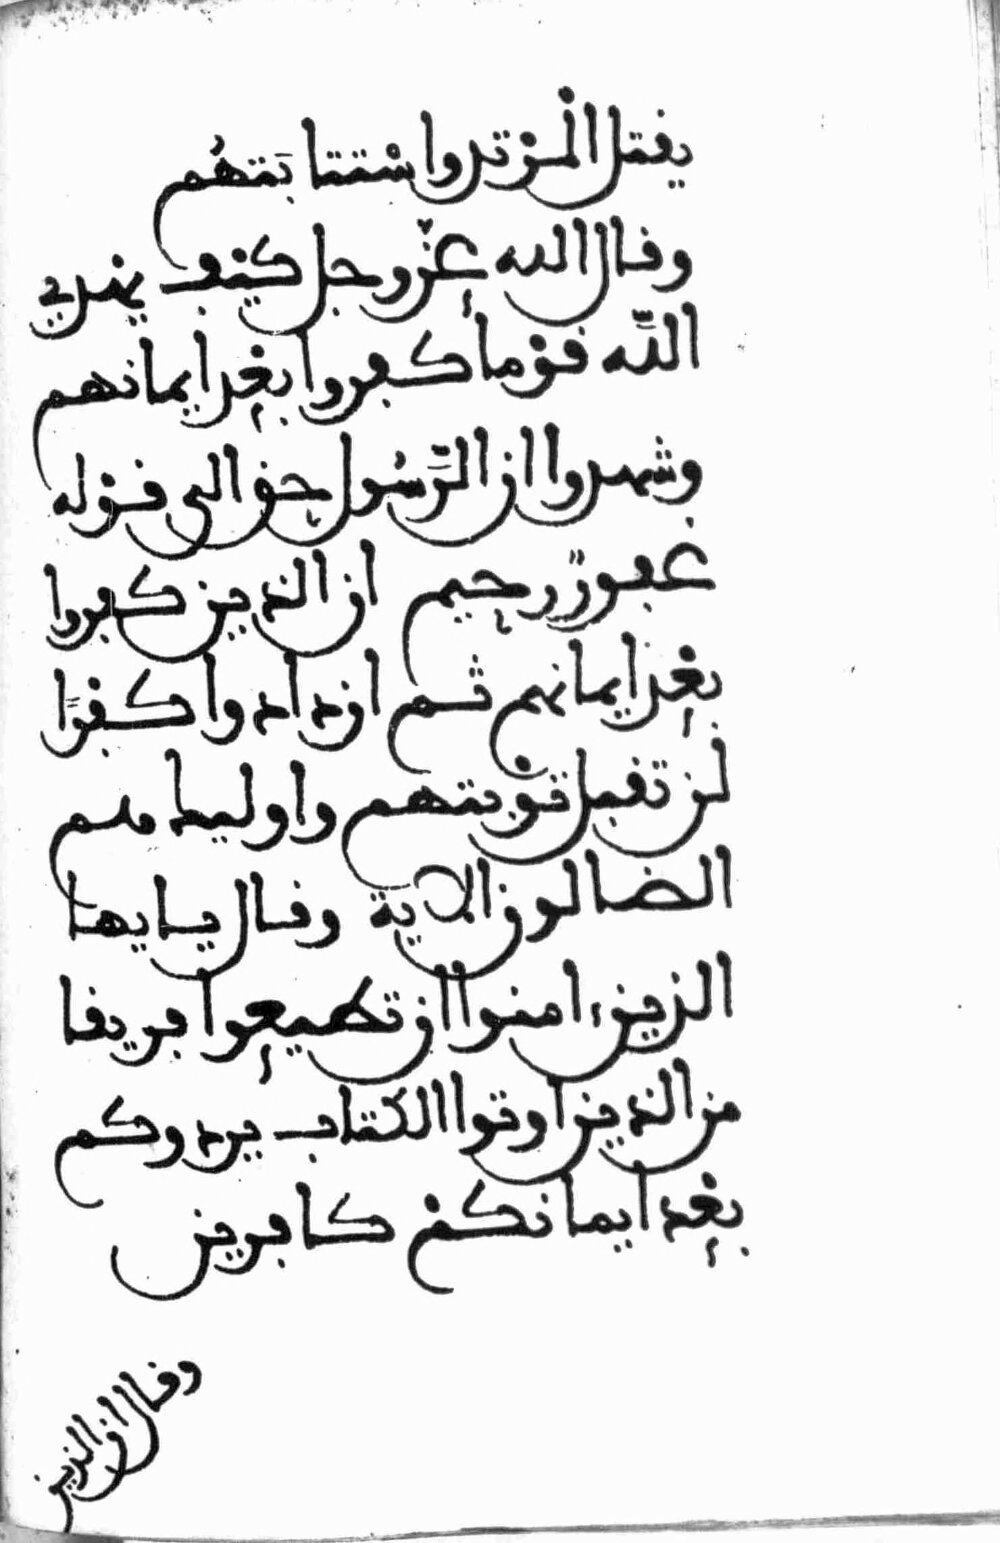 يقتل المرتد واستتابتهم
وقال الله عز وجل كيف يهدي
الله قوما كفروا بعد ايمانهم
وشهدوا ان الرسول حق الى قوله
غفور رحيم ان الذين كفروا
بعد ايمانهم ثم ازدادوا كفرا
لن تقبل توبتهم واوليك هم
الضالون الاية وقال يايها
الذين ءامنوا ان تطيعوا فريقا
من الذين اوتوا الكتاب يردوكم
بعد ايمانكم كافرين
وقال ان الذين